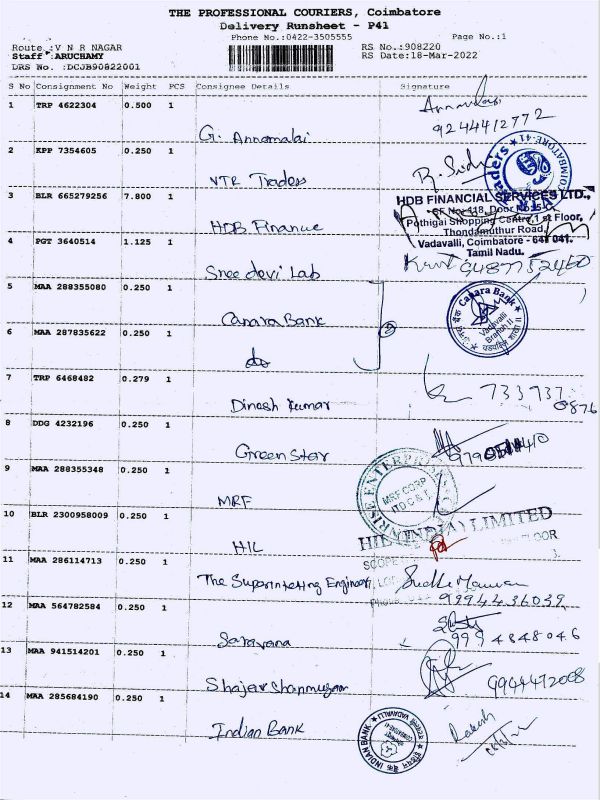 THE PROFESSIONAL COURIERS, Coimbatore
Delivery Runsheet - P41
Phone No.:0422-3505555 Page No.:1
Route :V N R NAGAR RS No.:908220
Staff :ARUCHAMY RS Date:18-Mar-2022
DRS No. :DCJB90822001
S No Consignment No Weight PCS Consignee Details Signature
1 TRP 4622304 0.500 1 G. Annamalai
9244412772
2 KPP 7354605 0.250 1 VTR Traders
3 BLR 665279256 7.800 1 HDB Finance
HDB FINANCIAL SERVICES LTD.,
Pothigai Shopping Centre, 1st Floor,
Thondamuthur Road,
Vadavalli, Coimbatore - 641 041.
Tamil Nadu.
4 PGT 3640514 1.125 1 Sree devi Lab
9487752460
5 MAA 288355080 0.250 1 Canara Bank
Canara Bank
Vadavalli
Branch II
6 MAA 287835622 0.250 1 do
2
7 TRP 6468482 0.279 1 Dinesh kumar
733937
0876
8 DDG 4232196 0.250 1 Green Star
9 MAA 288355348 0.250 1 MRF
MRF CORP
LTD C.S.T.
10 BLR 2300958009 0.250 1 HIL
HIL (INDIA) LIMITED
FLOOR
11 MAA 286114713 0.250 1 The Superinteting Engineer
9994436039
12 MAA 564782584 0.250 1 Saravana
9994848046
13 MAA 941514201 0.250 1 Shajer Shanmugam
9944472008
14 MAA 285684190 0.250 1 Indian Bank
INDIAN BANK
Rakesh